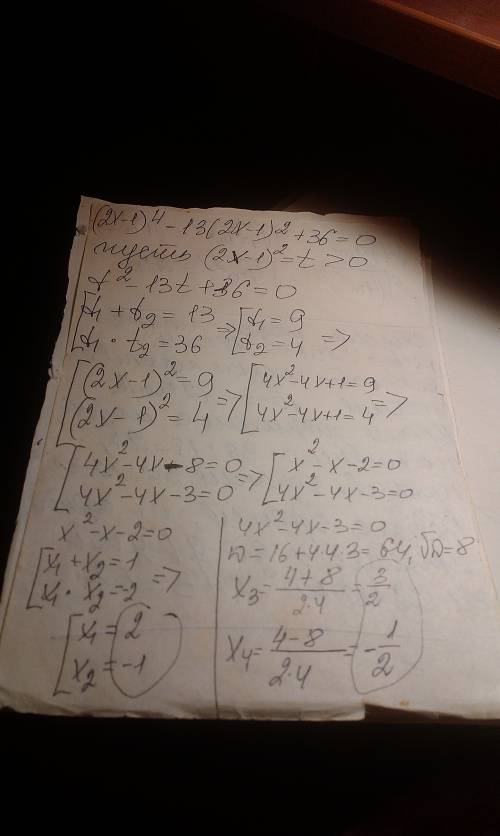 (2x-1)⁴ - 13(2x-1)² + 36 = 0
пусть (2x-1)² = t > 0
t² - 13t + 36 = 0
[t₁ + t₂ = 13 => [t₁ = 9
t₁ · t₂ = 36 t₂ = 4 =>
[(2x-1)² = 9 => [4x²-4x+1=9
(2x-1)² = 4 4x²-4x+1=4 =>
[4x²-4x-8=0 => [x²-x-2=0
4x²-4x-3=0 4x²-4x-3=0
x²-x-2=0
[x₁+x₂=1
x₁·x₂=-2 =>
[x₁=2
x₂=-1
4x²-4x-3=0
D=16+4·4·3=64, √D=8
x₃= (4+8)/(2·4) = 3/2
x₄= (4-8)/(2·4) = -1/2